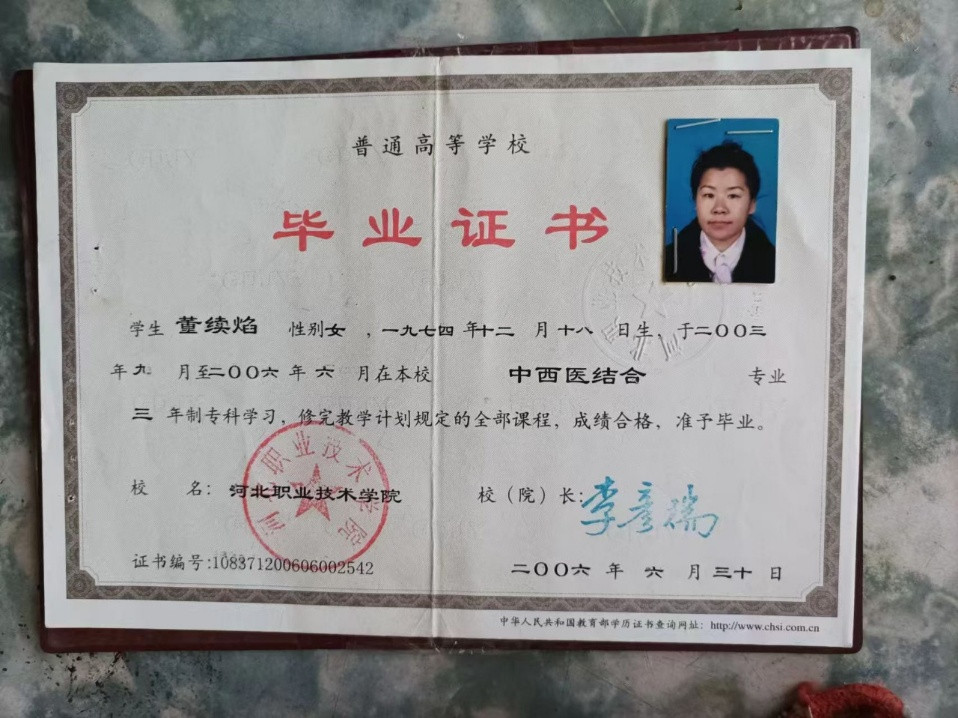 普通高等学校
毕业证书
学生 董续焰 性别女 ，一九七四 年十二 月十八 日生，于二〇〇三
年九 月至二〇〇六年 六 月在本校 中西医结合 专业
三 年制专科学习，修完教学计划规定的全部课程，成绩合格，准予毕业。
校 名：河北职业技术学院 校（院）长：李彦瑞
河北职业技术学院
证书编号:108371200606002542 二〇〇六 年 六 月 三十 日
中华人民共和国教育部学历证书查询网址：http://www.chsi.com.cn